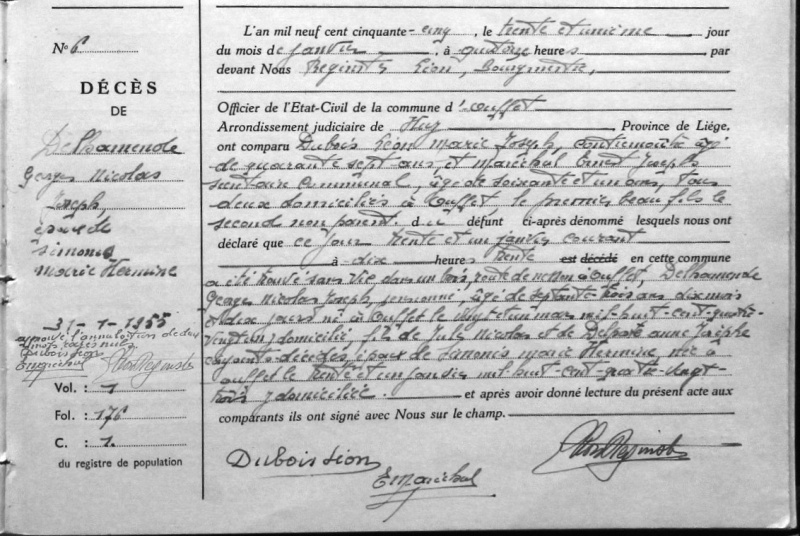 N° 6
DÉCÈS
DE
Delhamende
Georges Nicolas
Joseph,
époux de
Simonis
Marie Hermine
31-1-1955
approuvé l'annulation de deux
mots rayés nuls
Dubois Léon
E Maréchal
Vol. : 1
Fol. : 176
C. : 1.
du registre de population
L'an mil neuf cent cinquante-cinq, le trente et unième jour
du mois de janvier, à quatorze heures, par
devant Nous Reginster Léon, Bourgmestre,
Officier de l'Etat-Civil de la commune d'Ouffet
Arrondissement judiciaire de Huy, Province de Liége,
ont comparu Dubois Léon Marie Joseph, âgé
de quarante sept ans et Maréchal Ernest Joseph
secrétaire communal, âgé de soixante et un ans, tous
deux domiciliés à Ouffet le premier beau fils le
second non parent du défunt ci-après dénommé lesquels nous ont
déclaré que ce jour trente et un janvier courant
à dix heures trente est décédé en cette commune
a été trouvé sans vie, dans un bois, route de à Ouffet, Delhamende
Georges Nicolas Joseph, pensionné, âgé de septante-trois ans dix mois
et dix jours né à Ouffet le vingt et un mars mil-huit-cent-quatre-
vingt un y domicilié, fils de Jule Nicolas et de Anne Josèphe
conjoints décédés, époux de Simonis Marie Hermine, née à
Ouffet le trente et un janvier mil huit-cent-quatre-vingt-
trois y domiciliée. et après avoir donné lecture du présent acte aux
comparants ils ont signé avec Nous sur le champ.
Dubois Léon
E Maréchal